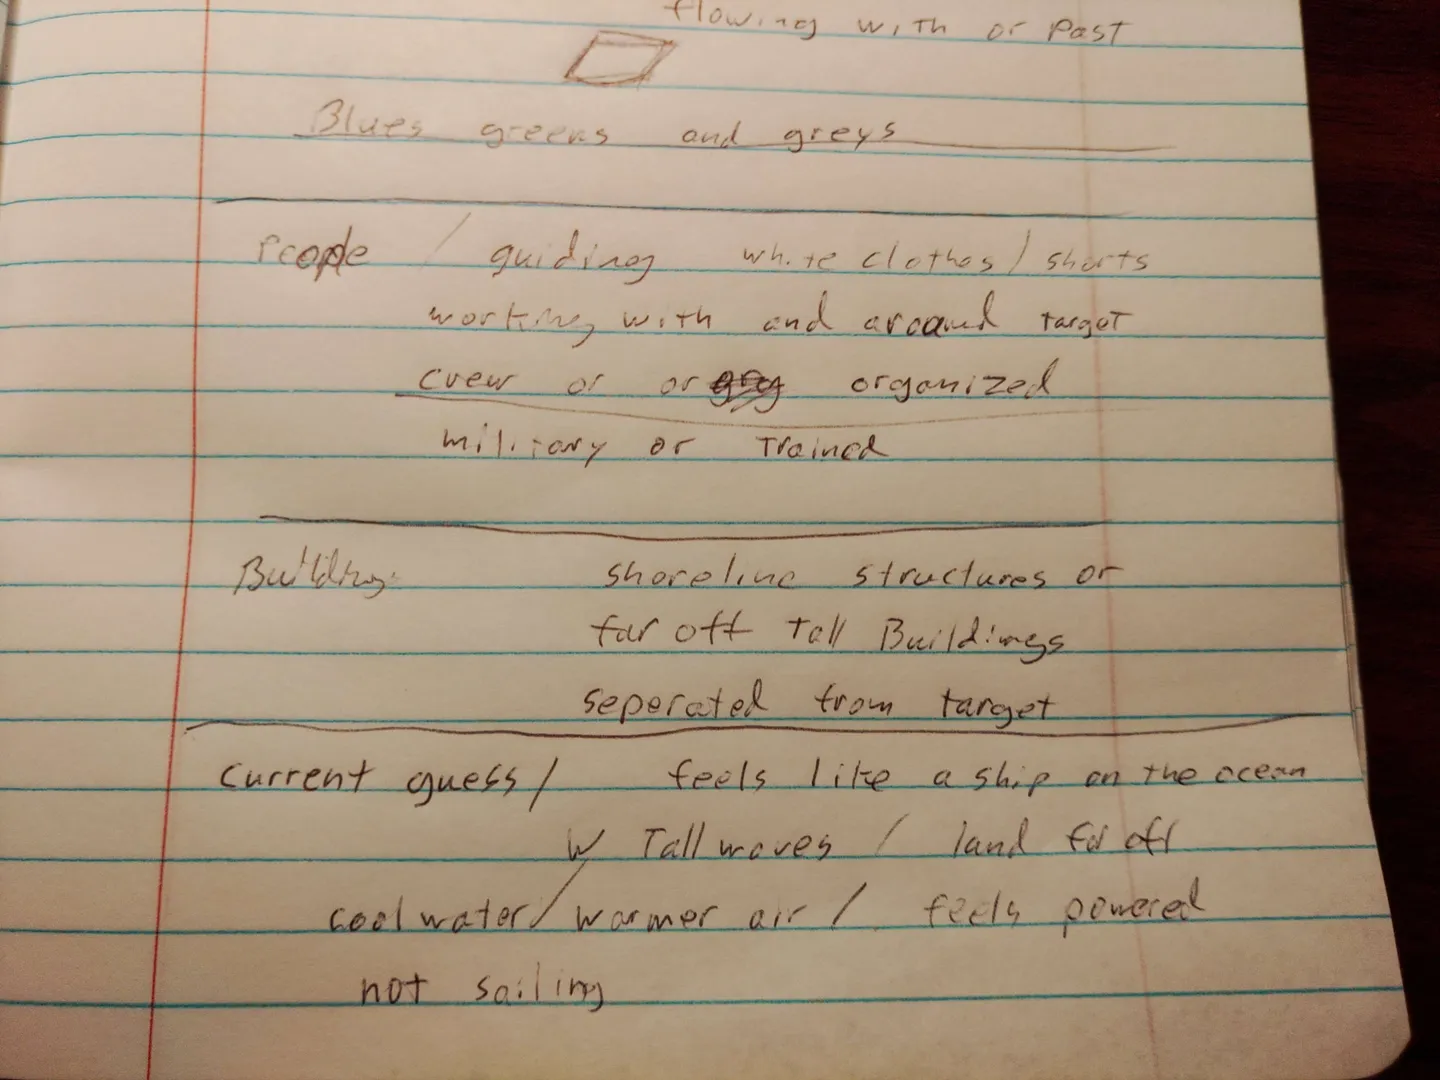 flowing with or past
Blues greens and greys
People / guiding white clothes / shorts
working with and around target
crew or or organized
military or Trained
Building shoreline structures or
far off Tall Buildings
seperated from target
Current guess / feels like a ship on the ocean
W Tall waves / land far off
cool water / warmer air / feels powered
not sailing